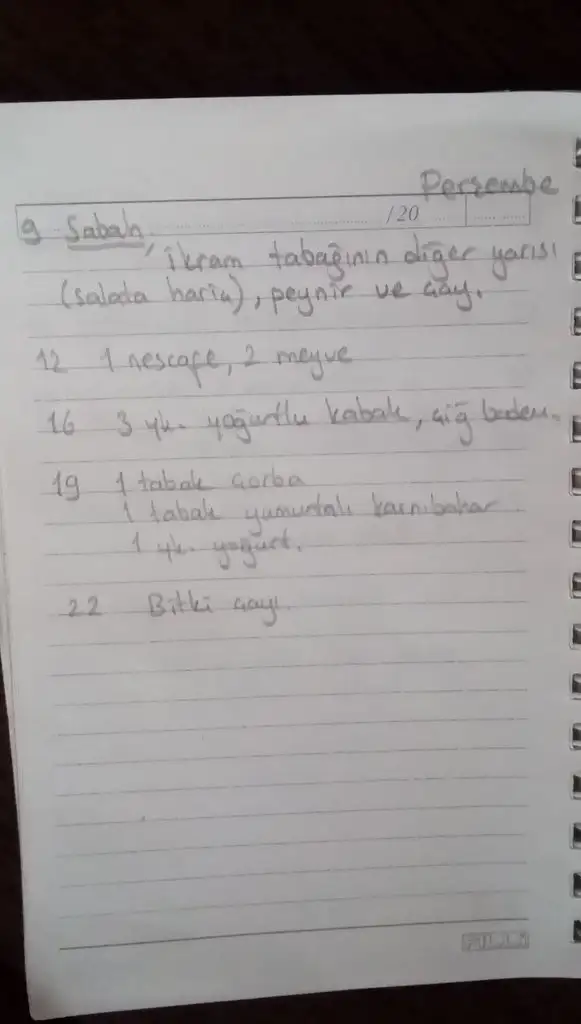 Perşembe
/20
9 Sabah,
ikram tabağının diğer yarısı
(salata hariç), peynir ve çay.
12 1 nescafe, 2 meyve
16 3 yk. yoğurtlu kabak, çiğ badem.
19 1 tabak çorba
1 tabak yumurtalı karnıbahar
1 yk. yoğurt.
22 Bitki çayı.